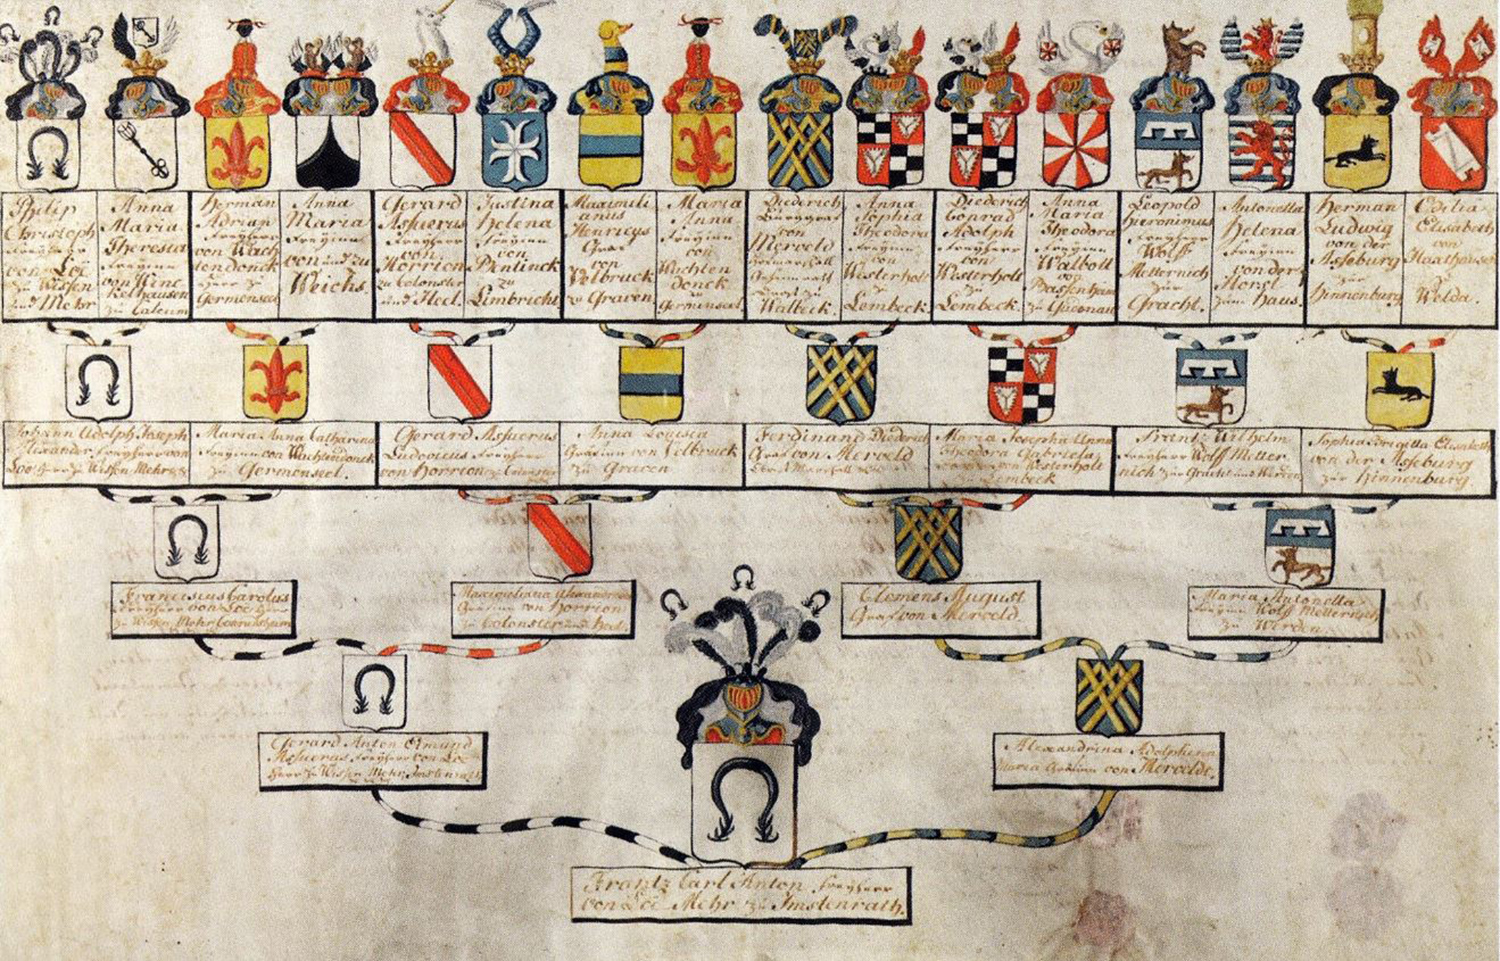 Philip
Christoph
Freÿherr
von Loë
zu Wissen
und Mehr
Anna
Maria
Theresia
Freÿinn
von Winc
kelhausen
zu Calcum
Herman
Adrian
Freÿherr
von Wach
tendonck
Herr zu
Germenseel
Anna
Maria
Freÿinn
von und zu
Weichs
Gerard
Assuerus
Freÿherr
von
Horrion
zu Colonster
und Heel.
Justina
Helena
Freÿinn
von
Bentinck
zu
Limbricht.
Maximili
anus
Henricus
Graf
von
Velbruck
zu Graven
Maria
Anna
Freÿinn
von
Wachten
donck
zu
Germinseel
Diederich
Burggraf
von
Merveld
Westerwinkel
Anna
Sophia
Theodora
Freÿinn
von
Westerholt
zu
Lembeck
Diederich
Conrad
Adolph
Freÿherr
von
Westerholt
zu
Lembeck.
Anna
Maria
Theodora
Freÿinn
von
Walbott
Bassenheim
zu Gudenau
Leopold
Hieronimus
Freÿherr
Wolff
Metternich
zur
Gracht.
Antonetta
Helena
Freÿinn
von der
Horst
zum Haus.
Herman
Ludwig
von der
Asseburg
zur
Hinnenburg
Odilia
Elisabeth
von
Haathausen
zu
Welda.
Johann Adolph Joseph
Alexander Freÿherr von
Loë Herr zu Wissen Mehr
Maria Anna Catharina
Freÿinn von Wachtendonck
zu Germenseel.
Gerard Assuerus
Ludovicus Freÿherr
von Horrion zu Colonster
Anna Louisia
Gräfinn von Velbruck
zu Graven
Ferdinand Diederich
Graf von Merveld
Maria Josepha Anna
Theodora Gabriela
von Westerholt
zu Lembeck
Frantz Wilhelm
Freÿherr Wolff Metter
nich zur Gracht und Werden
Sophia Brigitta Elisabeth
von der Asseburg
zur Hinnenburg.
Franciscus Carolus
Freÿherr von Loë Herr
zu Wissen Mehr Conradsheim
Maximiliana Alexandrina
Gräfinn von Horrion
zu Colonster und Heel.
Clemens August
Graf von Merveld.
Maria Antonetta
Freÿinn Wolff Metternich
zu Werden
Gerard Anton Edmund
Assuerus Freÿherr von Loë
Herr zu Wissen Mehr Imstenrath
Alexandrina Adolphina
Maria Gräfinn von Merveldt.
Frantz Carl Anton Freÿherr
von Loë Mehr zu Imstenrath.